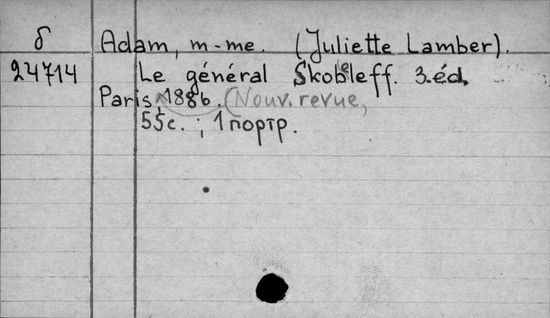 б Adam, m-me. (Juliette Lamber).
24714 Le général Skobeleff. 3.éd.
Paris, 1886. (Nouv. revue,
55с. ; 1 портр.